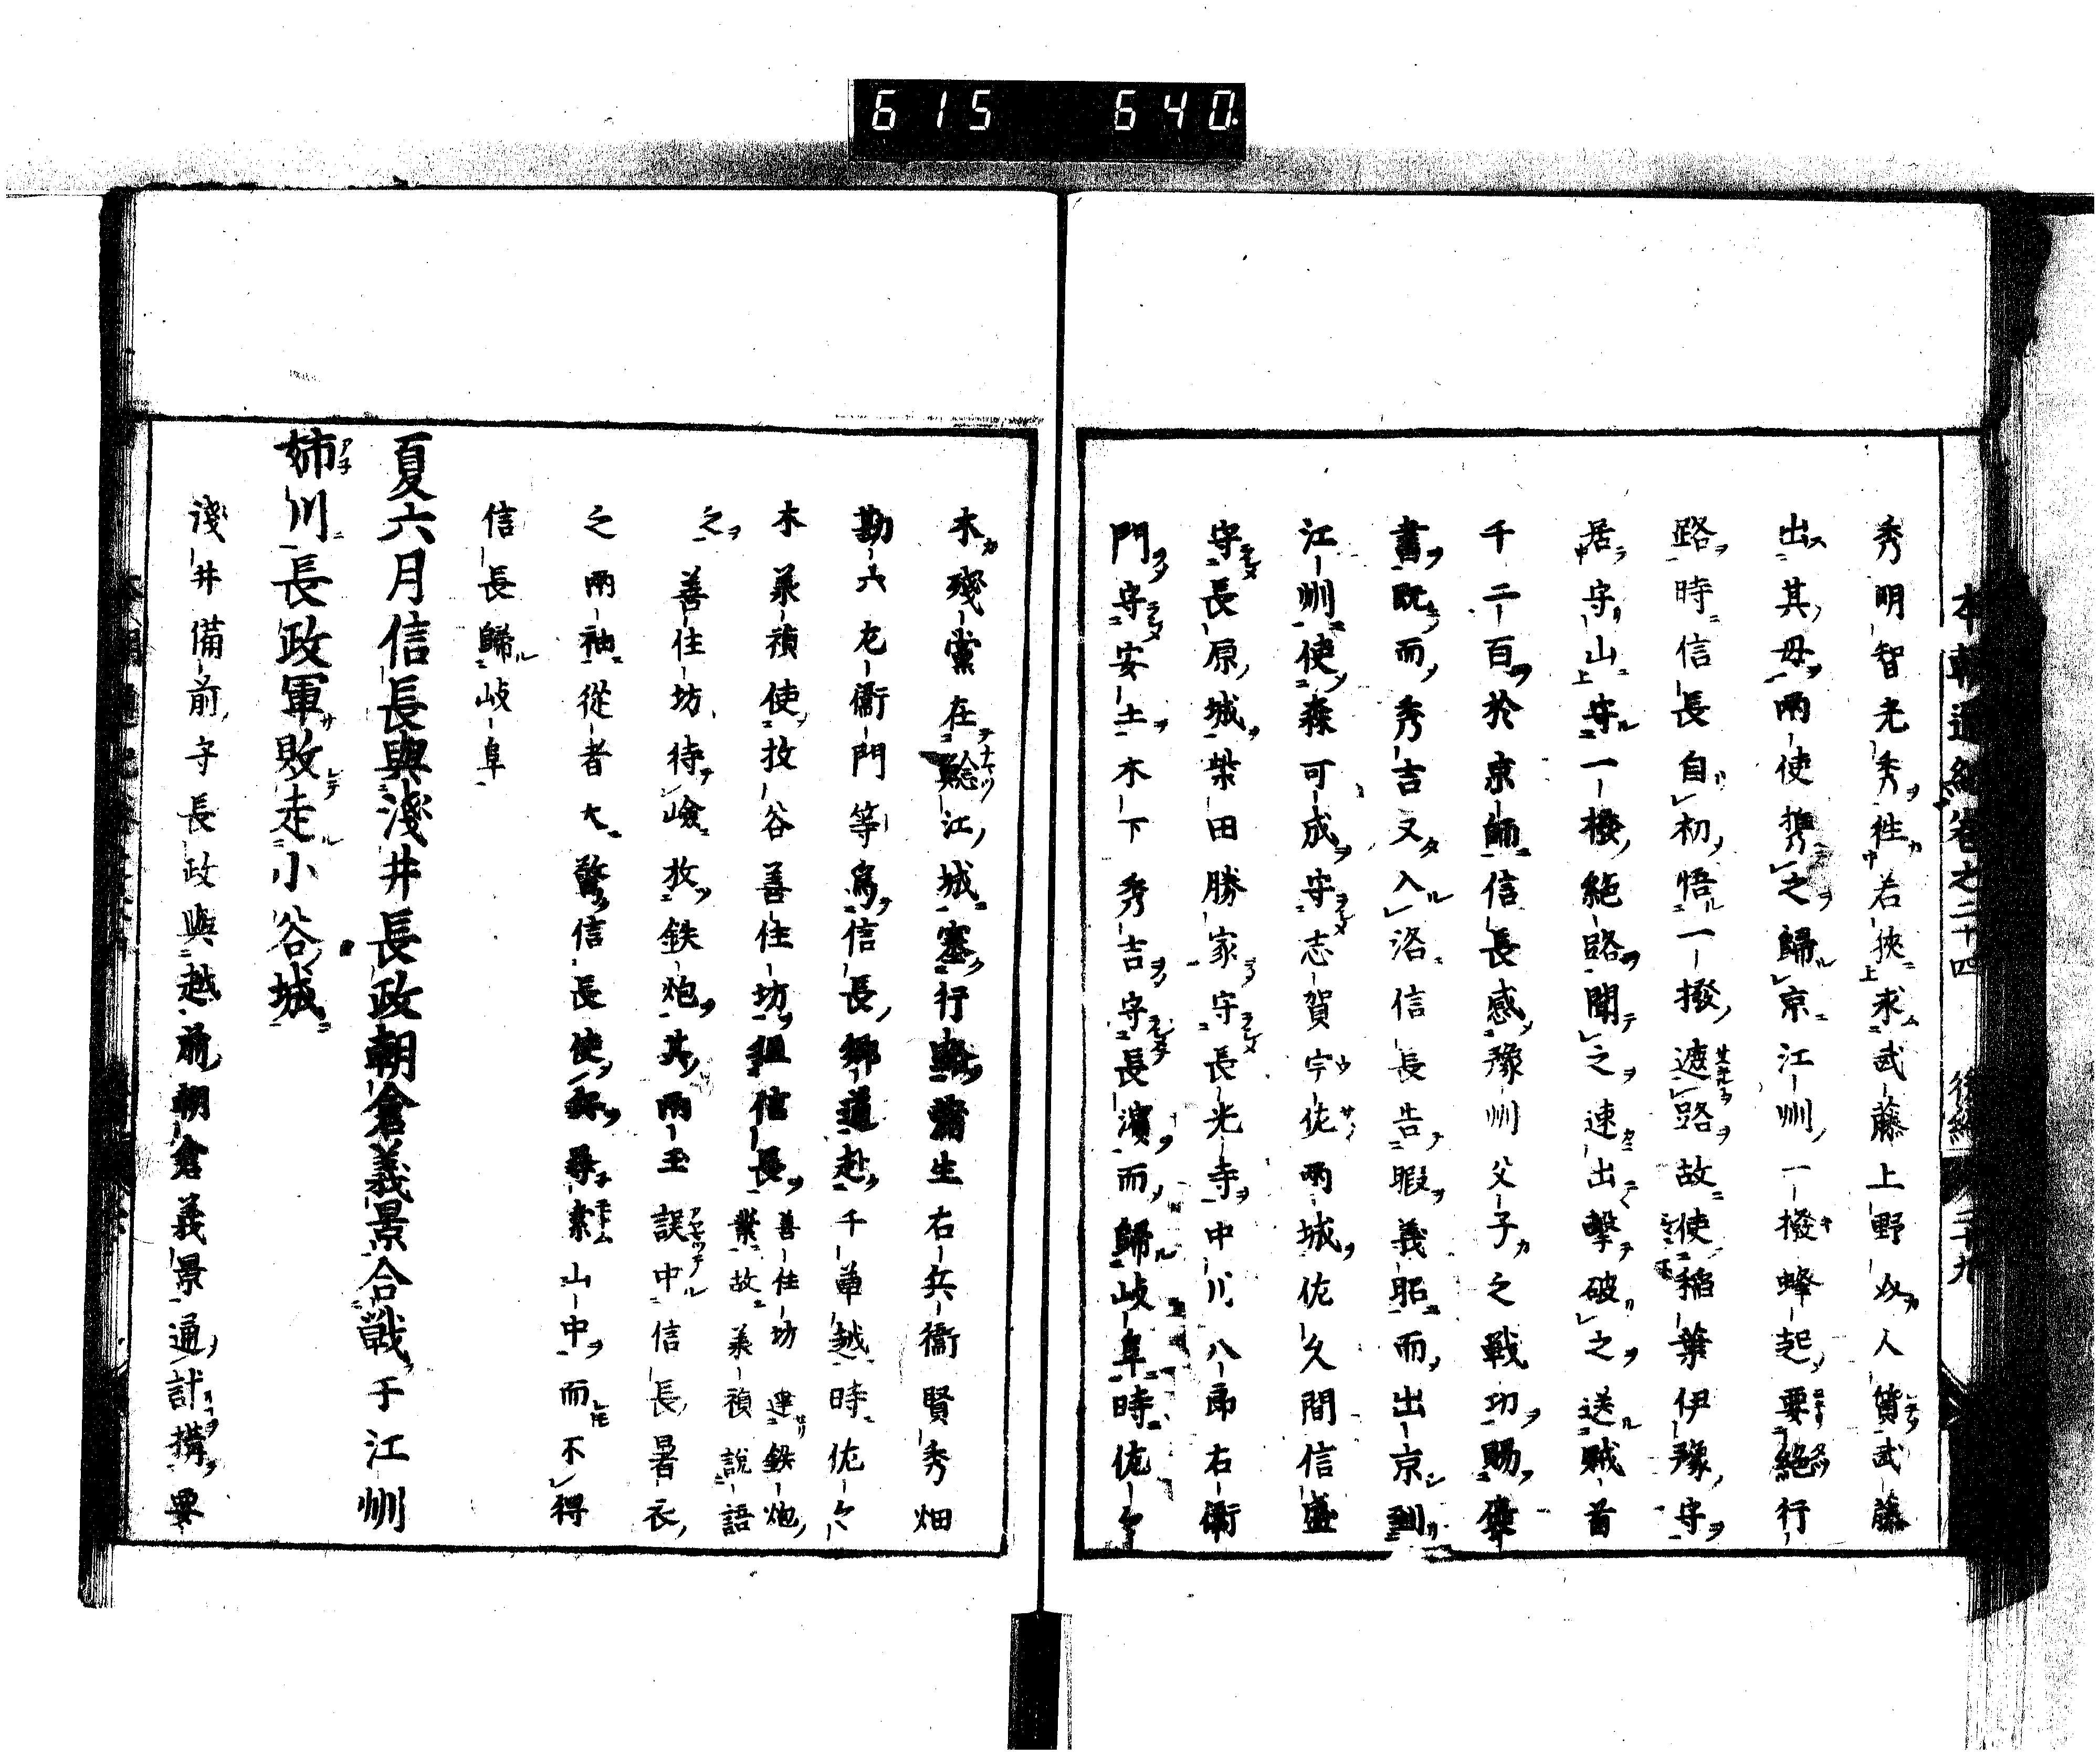 615 640
本朝通紀卷之二十四 後編 二十九
秀明智光秀往若狹求武藤上野介人質武藤
出其母兩使携之歸京江州一揆蜂起要絕行
路時信長自初悟一揆遮路故使稲葉伊豫守
居守山守一揆絕路聞之速出擊破之送賊首
千二百於京師信長感豫州父子之戰功賜
書既而秀吉又入洛信長告暇義昭而出京到
江州使森可成守志賀宇佐兩城佐久間信盛
守長原城柴田勝家守長光寺中川八郎右衛
門守安土木下秀吉守長濱而歸岐阜時佐々
木殘黨在鯰江城塞行路蒲生右兵衞賢秀畑
勘六左衞門等爲信長郷道赴千草越時佐々
木義禎使杉谷善住坊狙信長善住坊達鉄炮業故義禎説語
之善住坊待嶮放鉄炮其兩玉誤中信長暑衣
之兩袖從者大驚信長使尋索山中而不得
信長歸岐阜
夏六月信長與淺井長政朝倉義景合戰于江州
姉川長政軍敗走小谷城
淺井備前守長政與越前朝倉義景通計搆要